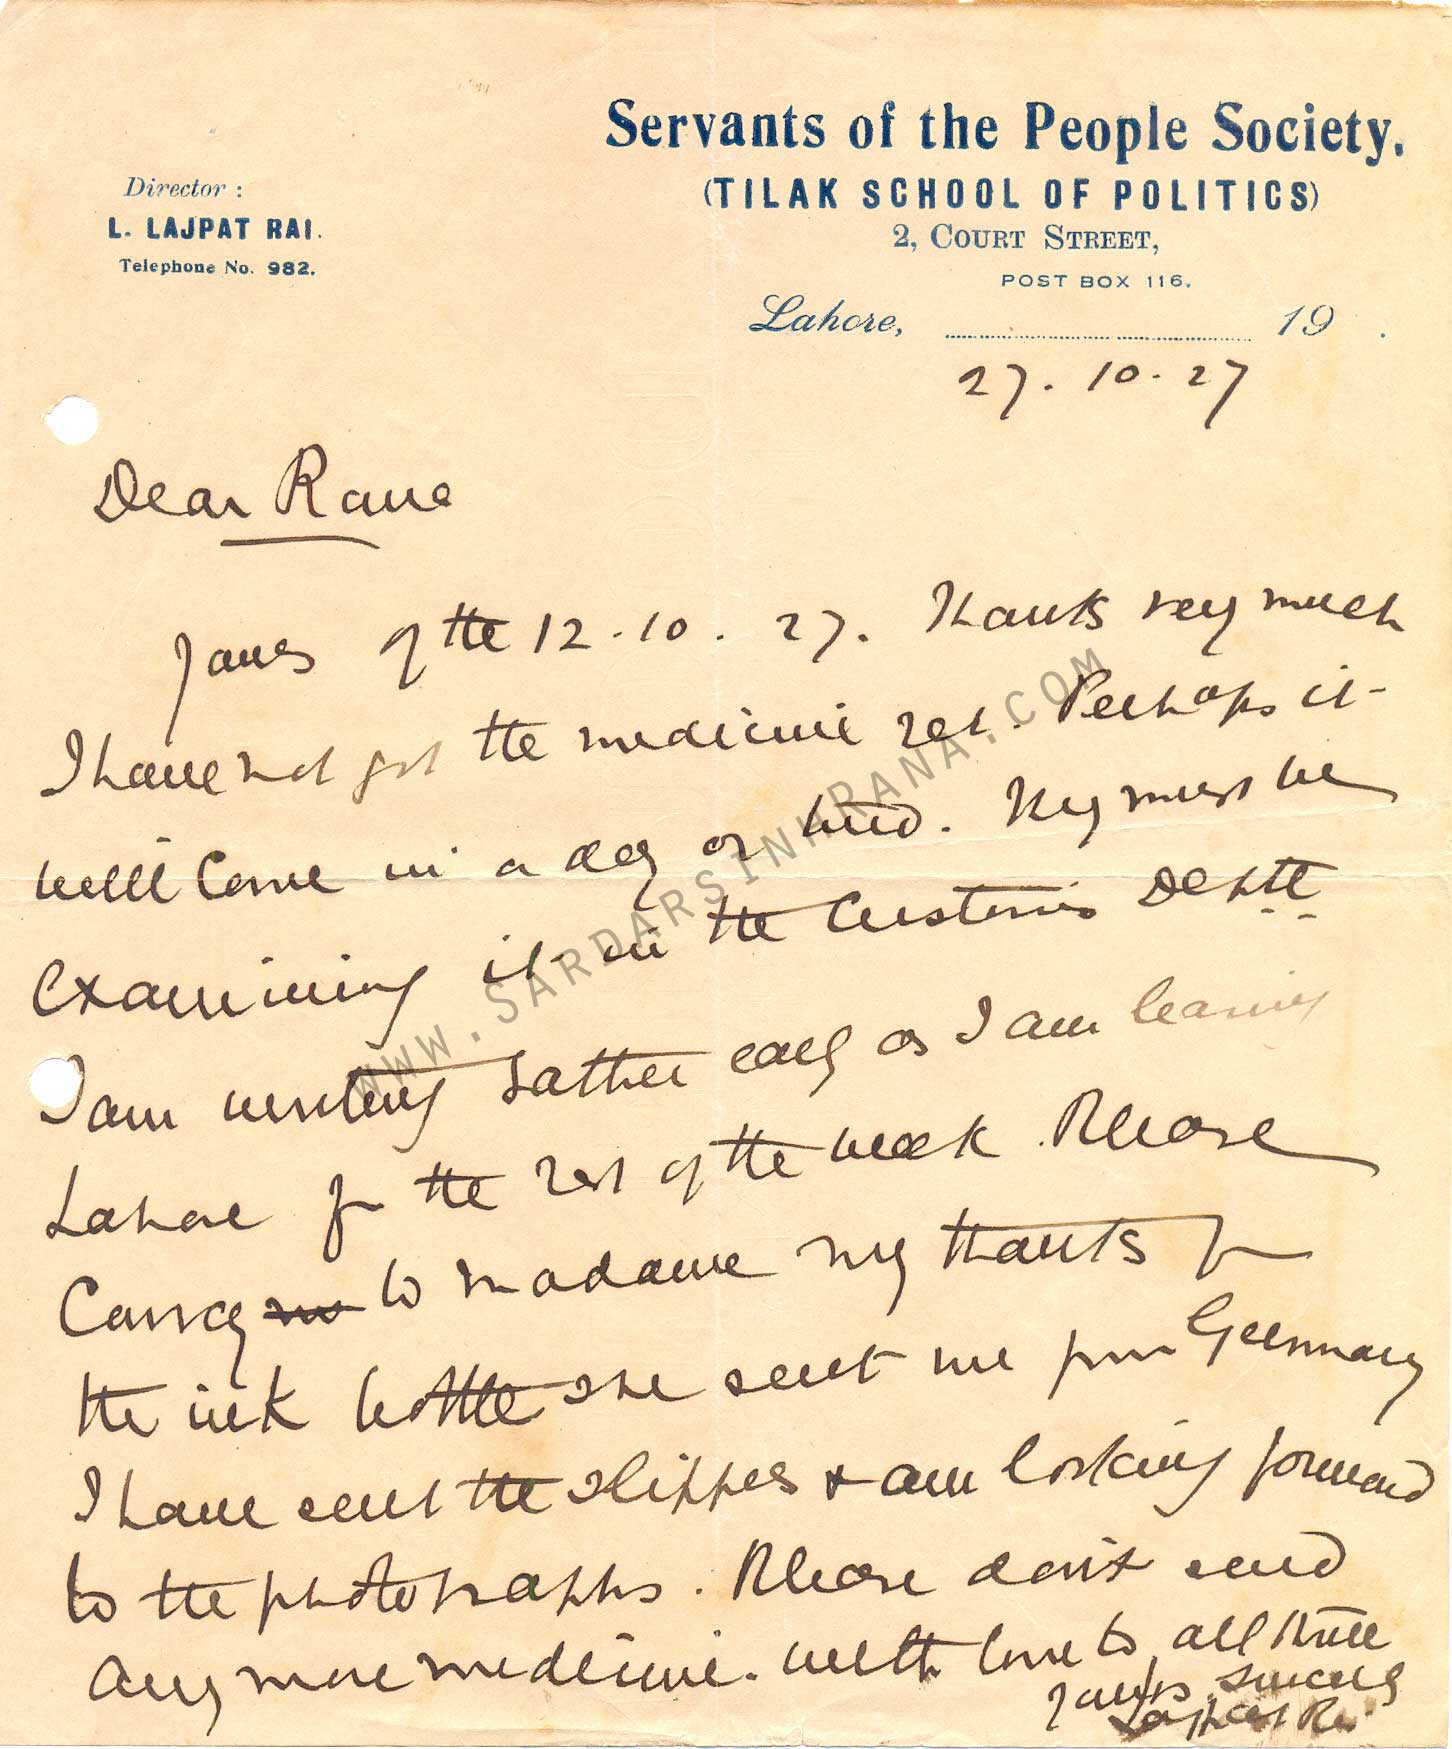 Servants of the People Society.
(TILAK SCHOOL OF POLITICS)
2, COURT STREET,
POST BOX 116.
Director :
L. LAJPAT RAI.
Telephone No. 982.
Lahore, 19 .
27. 10. 27
Dear Rana
Yours of the 12.10.27. Thanks very much
I have not got the medicine yet. Perhaps it
will come in a day or two. They must be
examining it in the Customs Deptt
I am writing rather early as I am leaving
Lahore for the rest of the week. Please
Convey to Madame my thanks for
the ink bottle she sent me from Germany
I have sent the slippers & am looking forward
to the photographs. Please don't send
any more medicine. With love to all three
Yours sincerely
Lajpat Rai
WWW.SARDARSINHRANA.COM